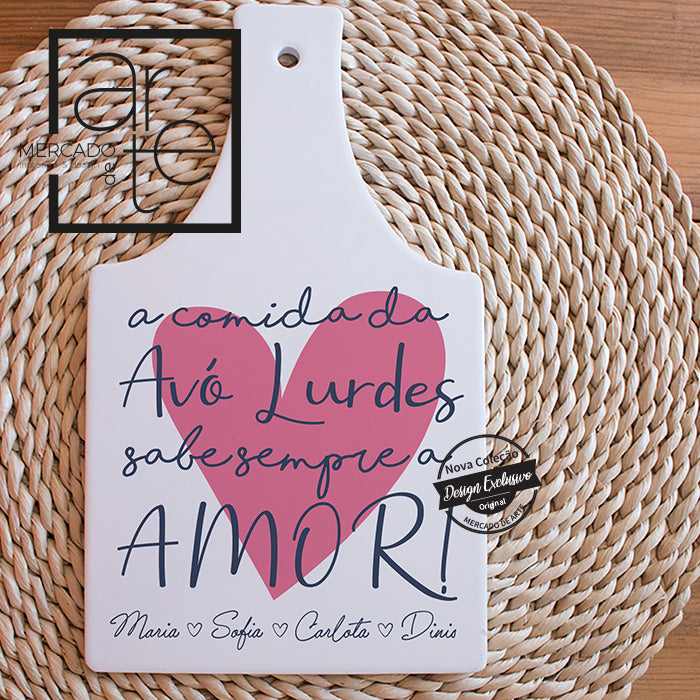 arte
MERCADO
de
a comida da
Avó Lurdes
sabe sempre a
AMOR!
Maria ♡ Sofia ♡ Carlota ♡ Dinis
Nova Coleção
Design Exclusivo
Original
MERCADO DE ARTE